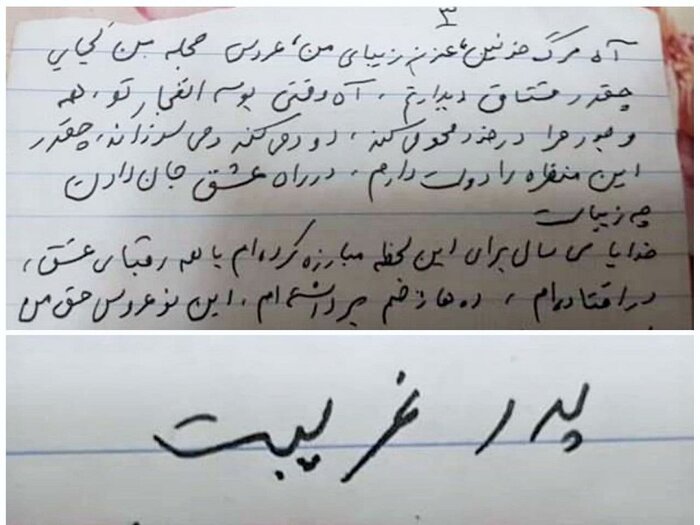 ۳
آه مرگ خونین، عزیز زیبای من، عروس حجله من کجایی
چقدر مشتاق دیدارتم، آه وقتی بوسه انفجار تو، همه
وجود مرا در خود محو می‌کند، دود می‌کند و می‌سوزاند، چقدر
این منظره را دوست دارم، در راه عشق جان دادن
چه زیباست
خدایا سی سال برای این لحظه مبارزه کرده‌ام با همه رقبای عشق،
درافتاده‌ام، ده‌ها زخم برداشته‌ام، این نو عروس حق من
پدر غریبت